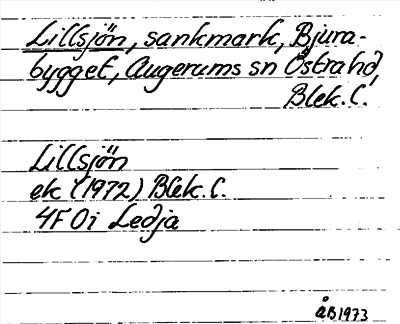 Lillsjön, sankmark, Bjura-
bygget, Augerums sn Östra hd,
Blek. l.
Lillsjön
ek (1972) Blek. l.
4F 0i Ledja
ÅB 1973